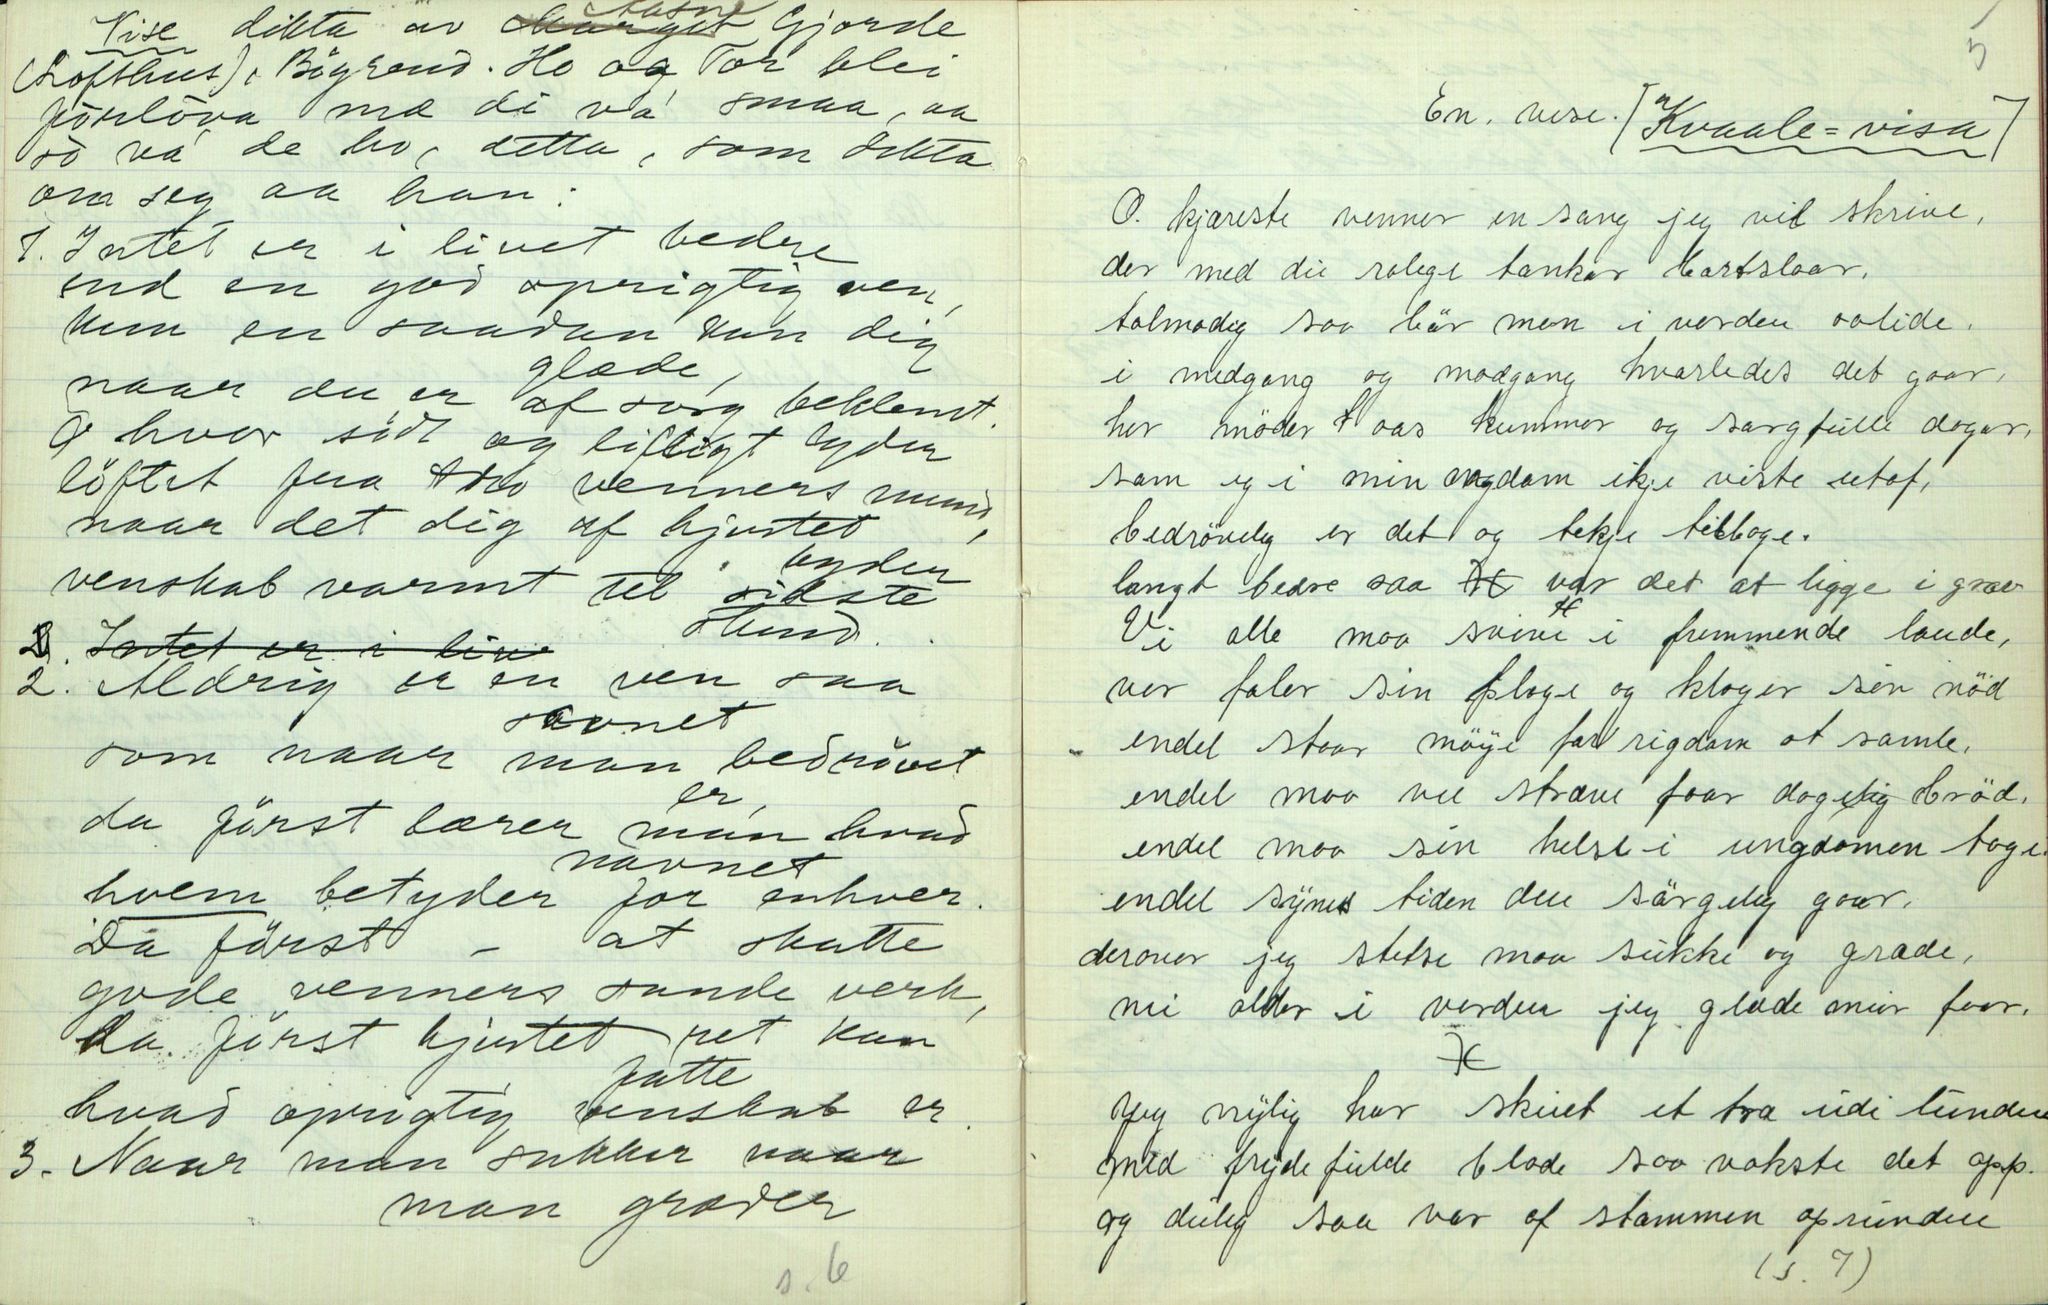 Vise dikta av Aasne Gjorde
(Lofthus), Bögrend. Ho og Tor blei
forlöva me di va' smaa, aa
so va' de ho, detta, som dikta
om seg aa han:
1. Intet er i livet bedre
end en god oprigtig ven,
kun en saadan kan dig
glæde,
naar du er af sorg beklemt.
O hvor södt og lifligt lyder
löftet fra to venners mund,
naar det dig af hjertet
byder
venskab varmt til sidste
stund.
Intet er i live
2. Aldrig er en ven saa
savnet
som naar man bedrövet
er,
da först lærer man hvad
navnet
hvem betyder for enhver.
Da först – at skatte
gode venners sande verk,
da först hjertet ret kan
fatte
hvad oprigtig venskab er.
3. Naar man sukker naar
man græder
s. 6
5
En. vise. [Kvaale=visa]
O. kjæreste venner en sang jeg vil skrive,
der med die rolige tanker bortslaar.
talmodig saa bär men i verden oolide.
i medgang og modgang hvorledes det gaar,
her möder oos kummer og sorgfulle dager,
som eg i min ongdom ikje viste utaf,
bedrövelig er det og tekje tilbage.
langt bedre saa var det at ligge i grav
Vi alle maa svive i fremmende lande,
ver föler sin plage og klager sin nöd
endel staar möÿe for rigdom at samle,
endel maa vel stræve faar dagelig bröd.
endel maa sin helse i ungdomen tage.
endel sÿnes tiden den sörgelig gaar.
derover jeg stetse maa sukke og græde,
mi alder i verden jeg glæde mier faar.
Jeg nÿlig har skuet et træ udi lunden
med frÿdefulde blade saa vokste det opp.
og deilig saa var af stammen oprunden
(s. 7)